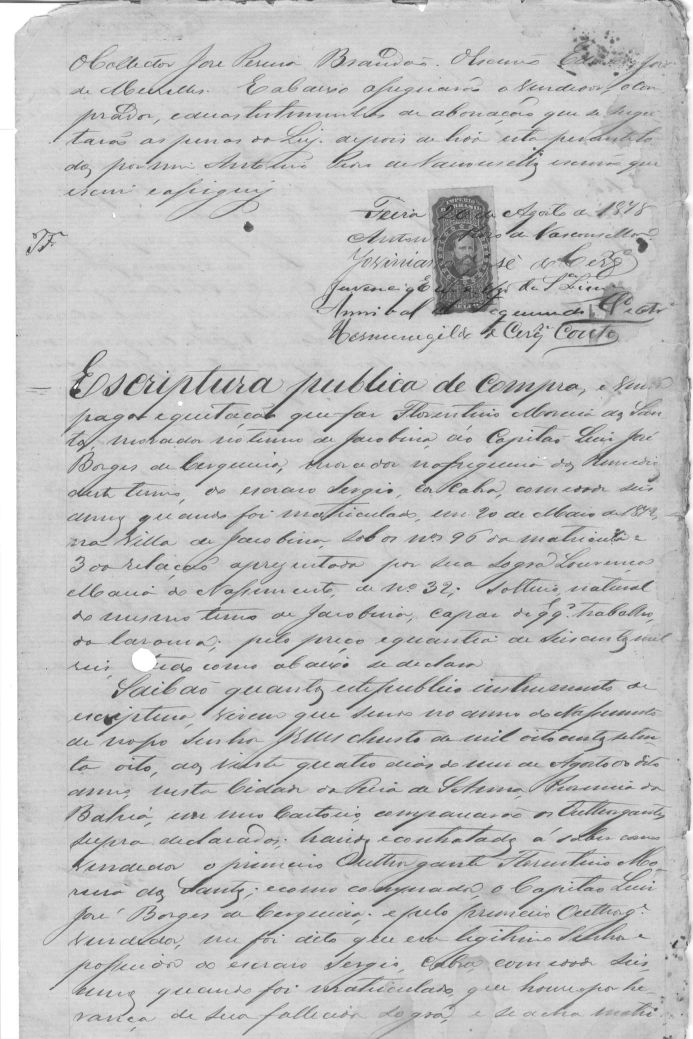 O Collector José Pereira Brandão. O Escrivão
de Menezes. E abaixo assignarão o vendedor, o com
prador, e duas testimunhas de abonação que se sugei
tarão as penas da Ley, depois de lida esta perante to
dos, por mim Antonio de Vasconcellos escrivão que
escrevi e assigney
Feira 20 de Agosto de 1878
Anton de Vasconcellos
IMPERIO
BRASIL
José de Cerqª
Annibal
Hermenegildo de Cerqª Couto
Escriptura publica de compra, e venda
paga e quitação que faz Florentino Moreira dos San
tos, morador no termo de Jacobina, ao Capitão Luis José
Borges de Cerqueira, morador na freguezia dos Remedios
deste termo, do escravo Sergio, cor Cabra, com idade seis
annos quando foi matriculado, em 20 de Maio de 1872,
na Villa de Jacobina, sob os nos 96 da matricula e
3 da relação aprezentada por sua sogra Lourença
Maria do Nascimento, de nº 32; Solteiro, natural
do mesmo termo de Jacobina, capaz de qqº trabalho,
da lavoura; pelo preço e quantia de seiscentos mil
reis, como abaixo se declara
Saibão quantos este publico instrumento de
escriptura, virem que sendo no anno do Nascimento
de nosso Senhor Jesus Christo de mil oitocentos seten
ta oito, aos vinte quatro dias do mez de Agosto do dito
anno, nesta Cidade da Feira de Sant'Anna, Provincia da
Bahia, em meo Cartorio, comparecerão os Outhorgantes
supra declarados; havidos e contratados á saber como
vendedor o primeiro Outhorgante Florentino Mo
reira dos Santos; e como comprador, o Capitão Luis
José Borges de Cerqueira; e pelo primeiro Outhorgº
vendedor, me foi dito que era legithimo Senhor e
possuidor do escravo Sergio, Cabra com idade seis
annos quando foi matriculado, que houve por he
rança de sua fallecida Sogra, e se acha matri